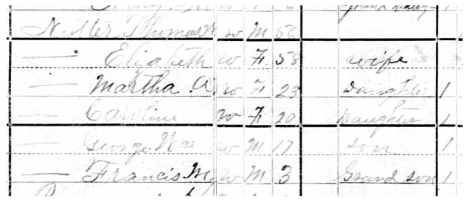 Nutter Thomas W w M 56
— Elizabeth w F 58 wife
— Martha A w F 23 Daughter 1
— Caroline w F 20 Daughter 1
— George Wm w M 17 son 1
— Francis M w M 3 Grand son 1